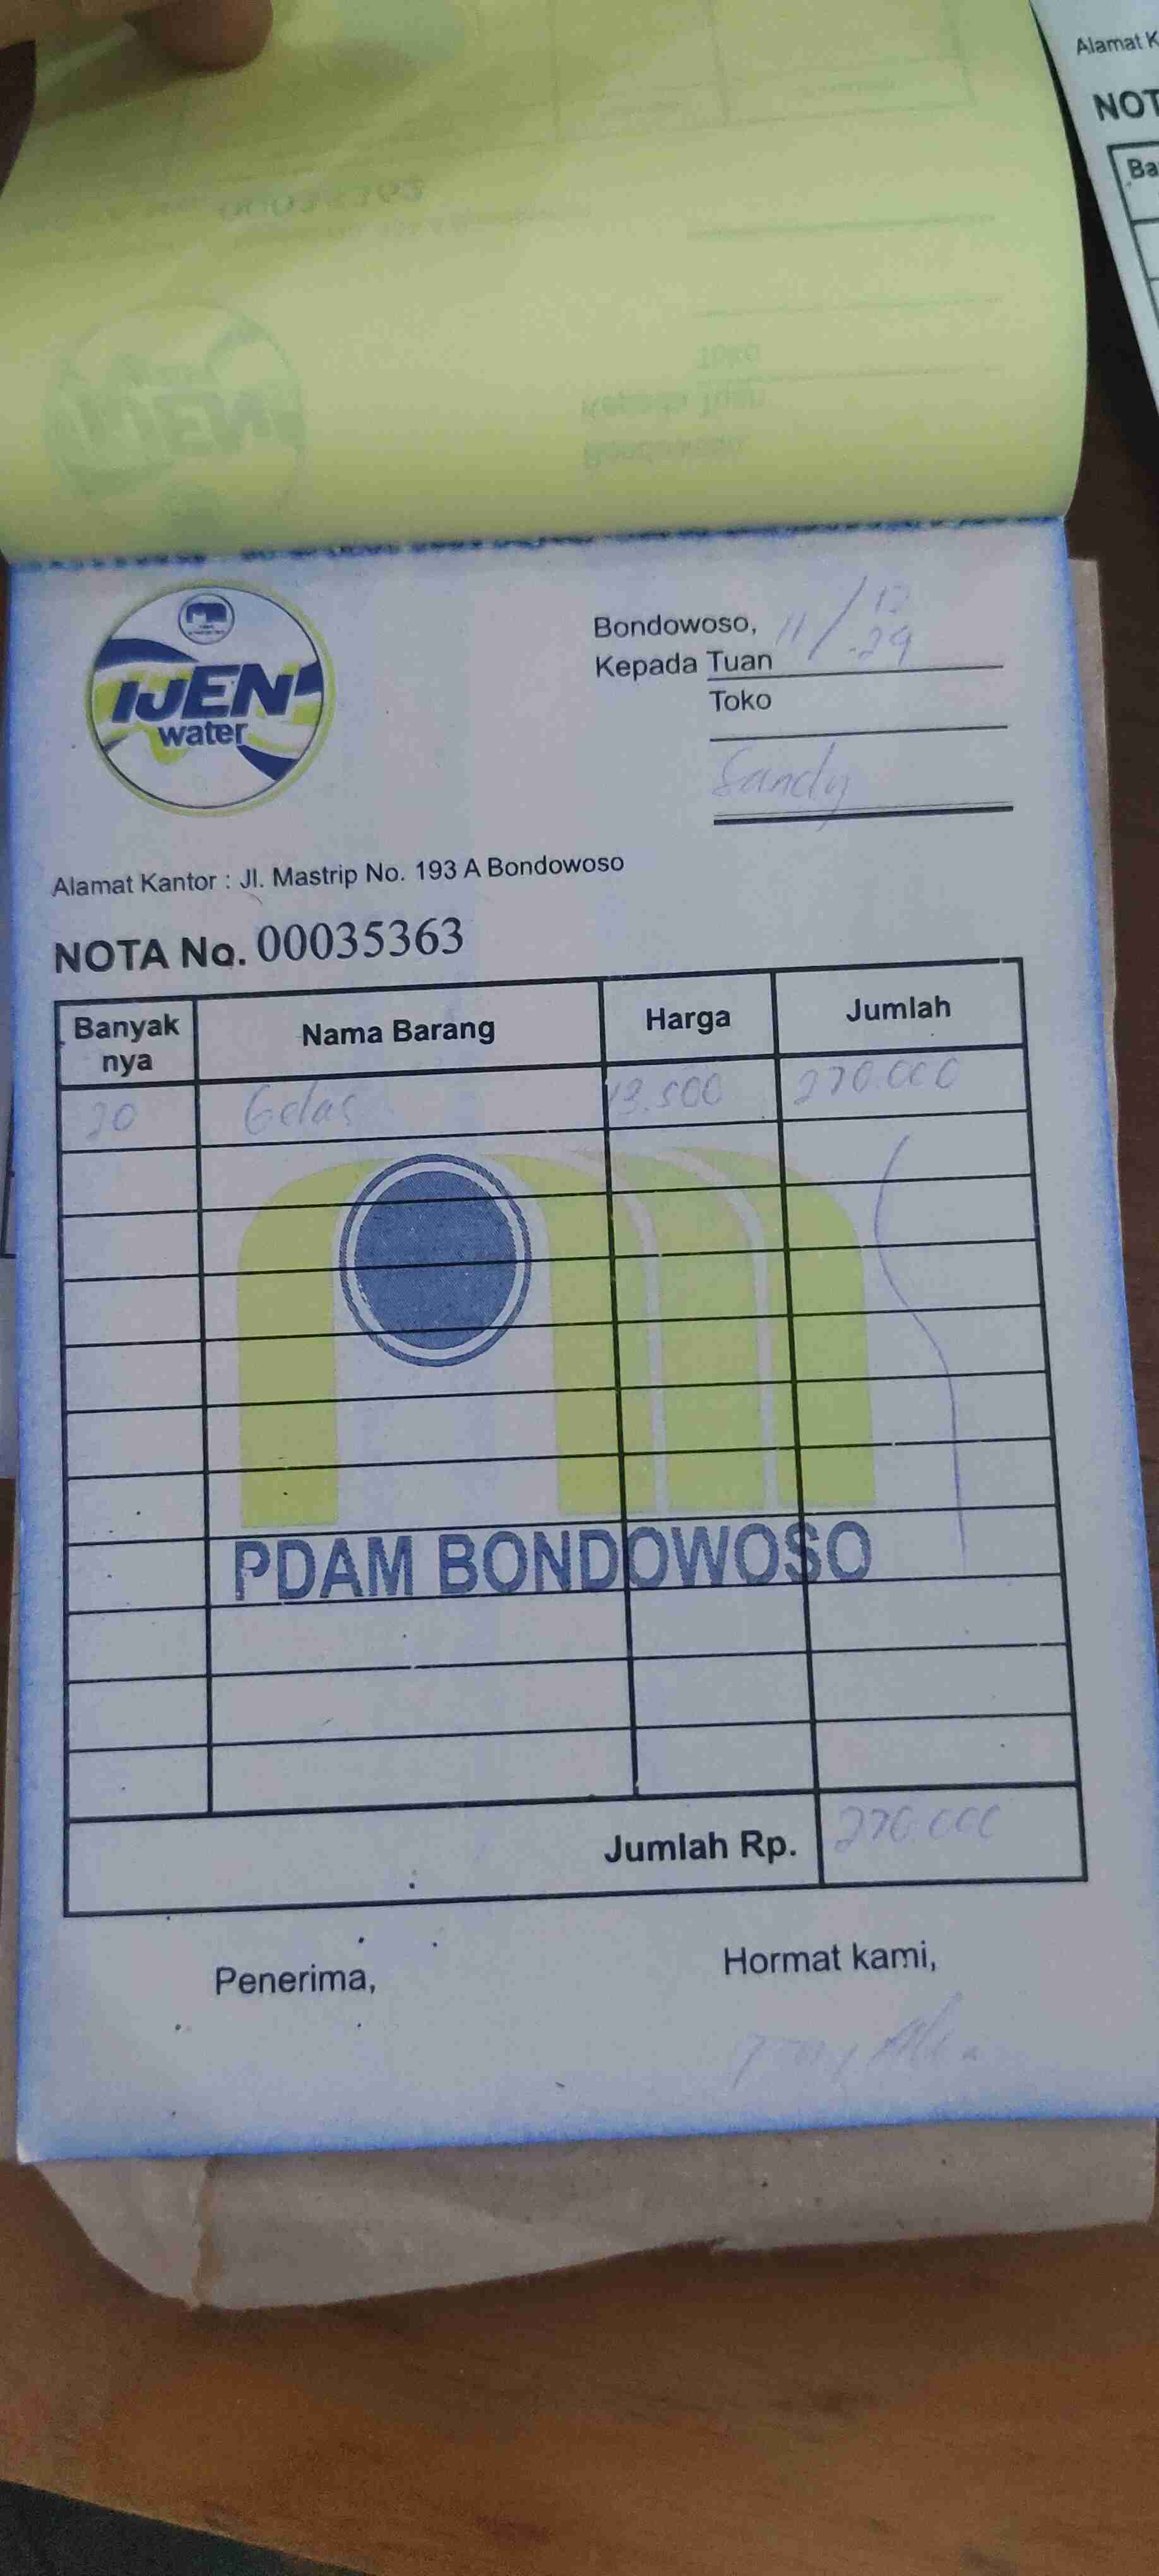 Alamat K
NOT
Ba
IJEN
water
Bondowoso, 11/12
Kepada Tuan
Toko
Sandy
Alamat Kantor : Jl. Mastrip No. 193 A Bondowoso
NOTA No. 00035363
Banyak nya Nama Barang Harga Jumlah
20 Gelas 13.500 270.000
PDAM BONDOWOSO
Jumlah Rp. 270.000
Penerima, Hormat kami,